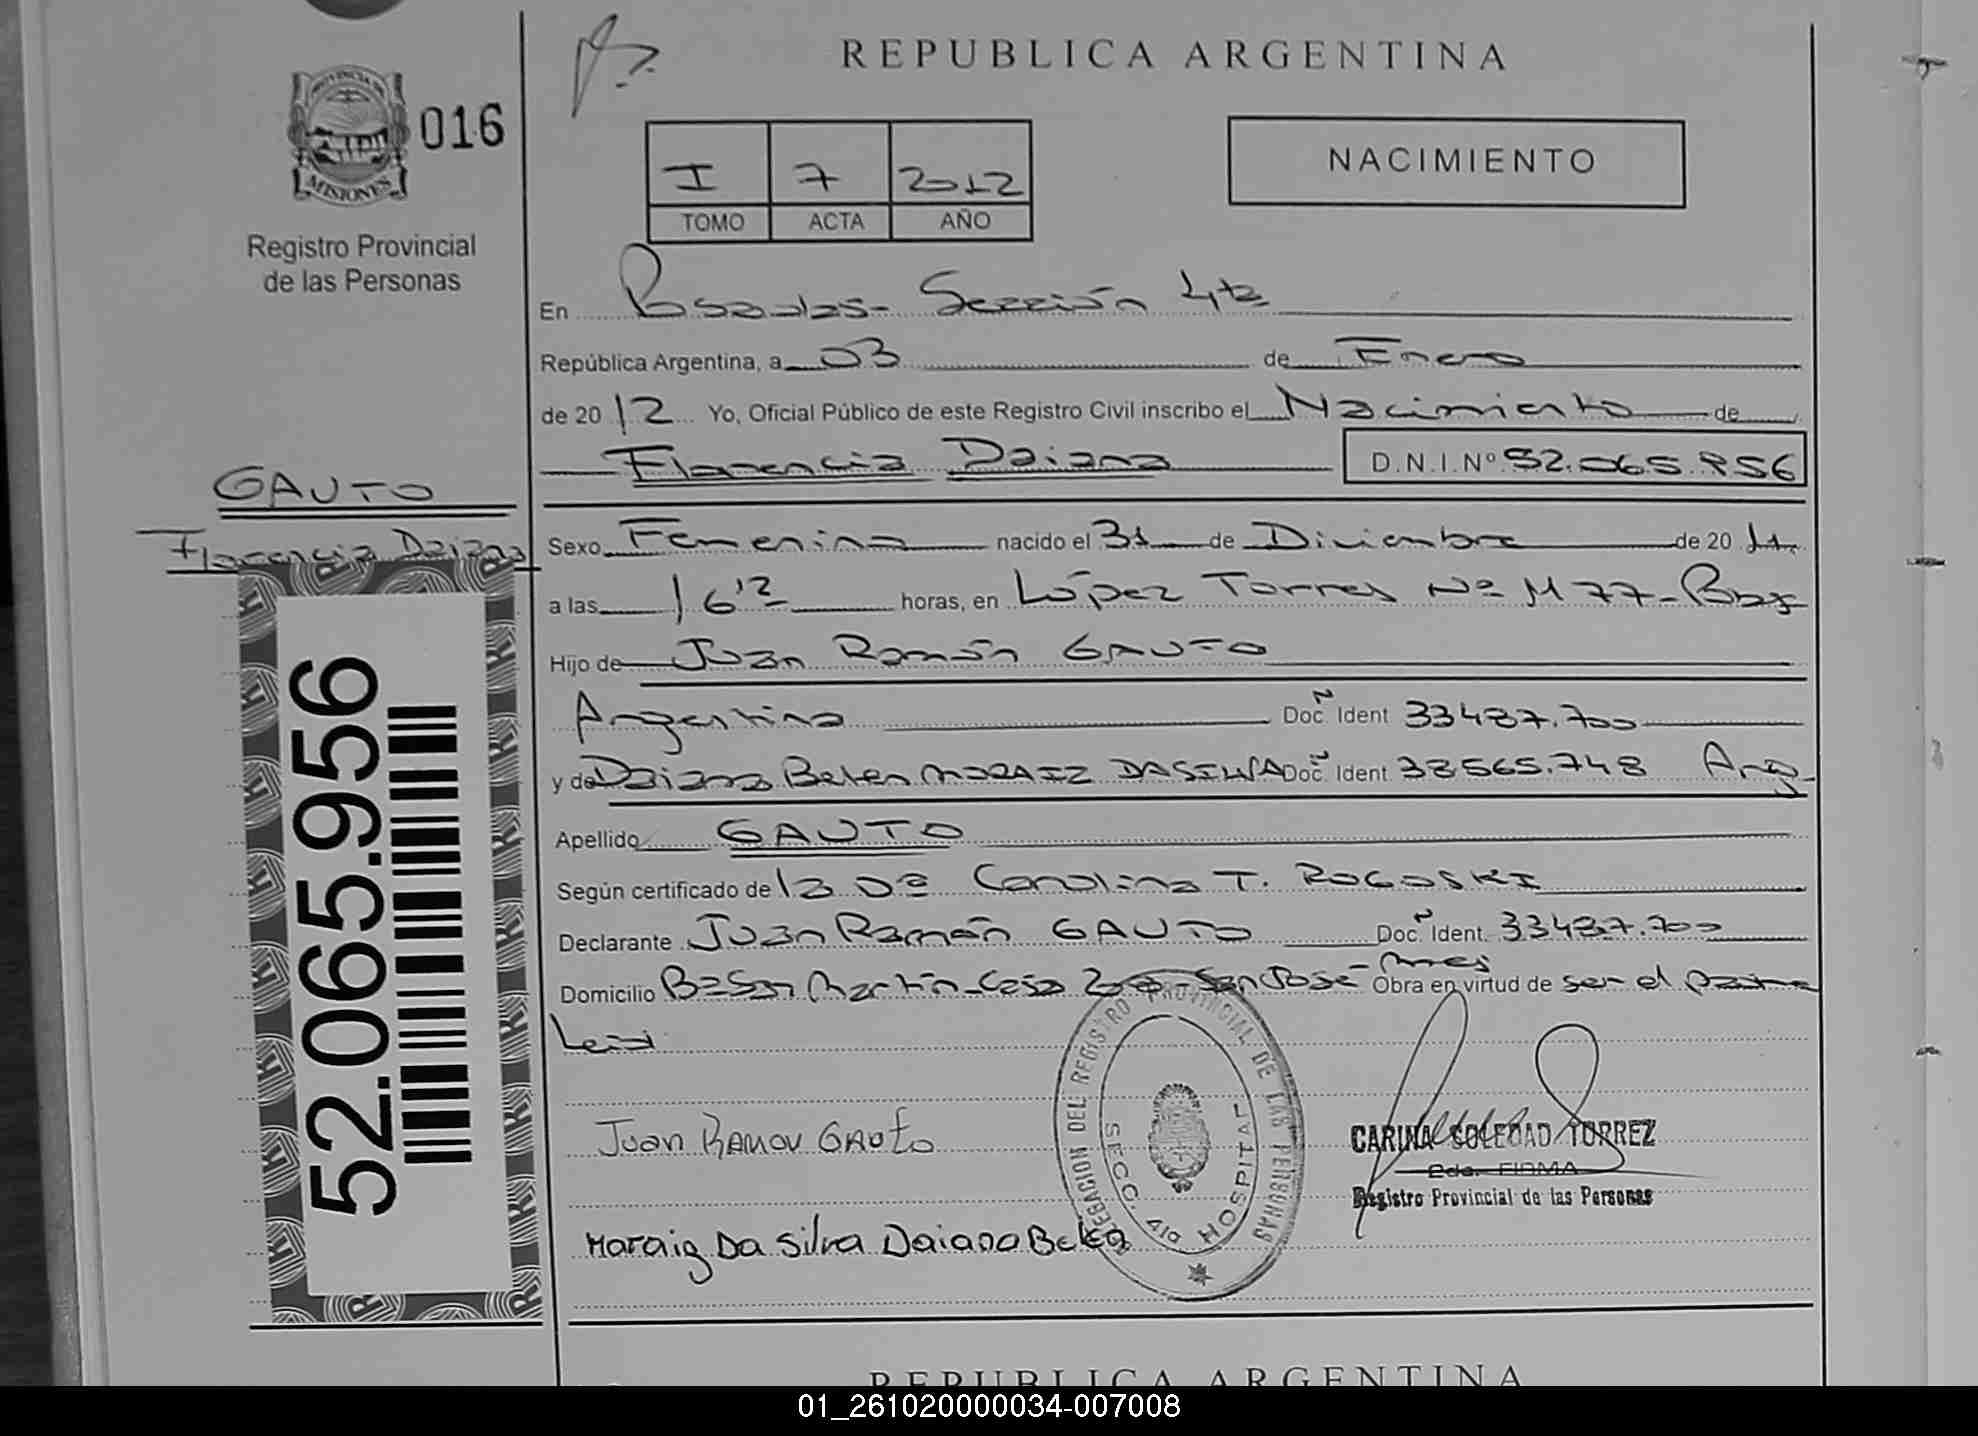 REPUBLICA ARGENTINA
016
MISIONES
Registro Provincial
de las Personas
I 7 2012
TOMO ACTA AÑO
NACIMIENTO
En Posadas - Sección 4ta
República Argentina, a 03 de Enero
de 2012 Yo, Oficial Público de este Registro Civil inscribo el Nacimiento de
Florencia Daiana D.N.I. Nº 52.065.956
GAUTO
Florencia Daiana
Sexo Femenino nacido el 31 de Diciembre de 2011
a las 16 12 horas, en López Torres Nº 1177 -
Hijo de Juan Ramón GAUTO
Argentino Doc. Ident 33487.700
y de Daiana Belen MORAIZ DA SILVA Doc. Ident 38565.748 Arg
Apellido GAUTO
Según certificado de la Dra Carolina T. ROGOSKI
Declarante Juan Ramón GAUTO Doc. Ident. 33487.700
Domicilio Bº San Martín - Casa - San José - Mnes Obra en virtud de ser el padre
Leid
52.065.956
Juan Ramon Gauto
Moraiz Da Silva Daiana Belen
DELEGACION DEL REGISTRO PROVINCIAL DE LAS PERSONAS
SECC. 4ta HOSPITAL
CARINA SOLEDAD TORREZ
2da. FIRMA
Registro Provincial de las Personas
REPUBLICA ARGENTINA
01_261020000034-007008